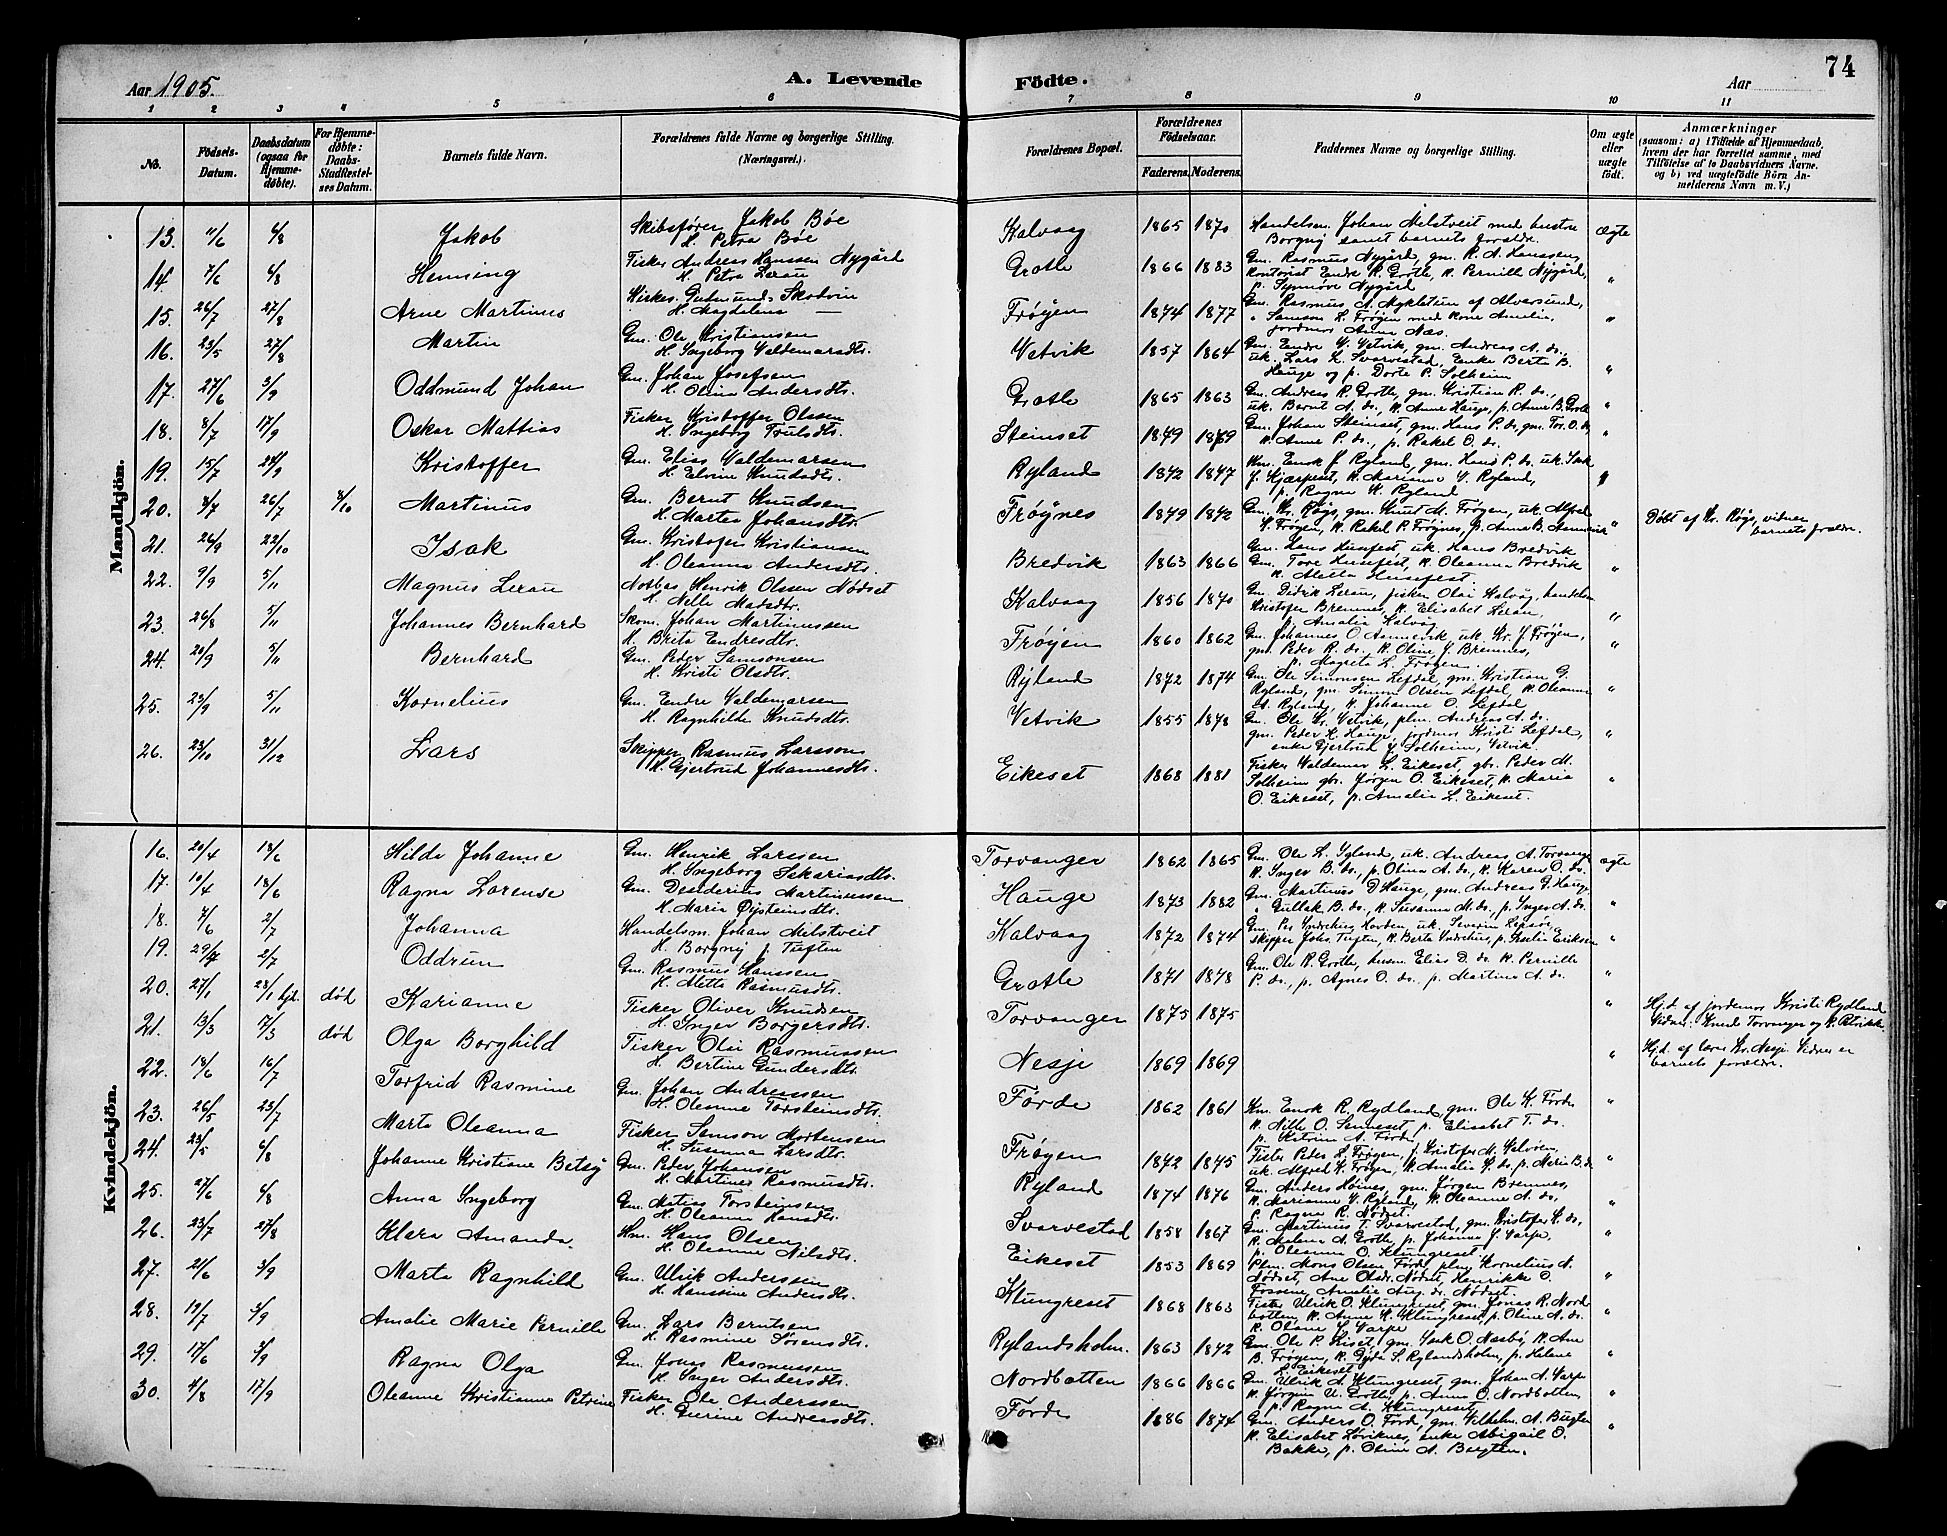 74
Aar 1905.
A. Levende Födte.
Aar
1 2 3 4 5 6 7 8 9 10 11
No.
Födsels-Datum.
Daabsdatum (ogsaa for Hjemmedøbte).
For Hjemmedøbte: Daabs-Stadfæstelses Datum.
Barnets fulde Navn.
Forældrenes fulde Navne og borgerlige Stilling. (Næringsvei.)
Forældrenes Bopæl.
Forældrenes Födselsaar.
Faderens. Moderens.
Faddernes Navne og borgerlige Stilling.
Om ægte eller uægte födt.
Anmærkninger
(saasom: a) i Tilfælde af Hjemmedaab, hvem der har forrettet samme, med Tilföielse af to Daabsvidners Navne. og b) ved uægtefödte Börn Anmelderens Navn m. V.)
Mandkjön.
13. 11/6 6/8 Jakob Skibsfører Jakob Bøe H. Petra Bøe Kalvaag 1865 1870 Handelsm. Johan Melstveit med hustru Borgny samt barnets forældre. ægte
14. 7/6 6/8 Henning Fisker Andreas Hanssen Nygård H. Petra Lerau Grotle 1866 1883 Gm. Rasmus Nygård, gm. R. A. Hanssen, Kontorist Endre R. Grotle, k. Pernille Nygård, p. Synnøve Nygård "
15. 26/7 27/8 Arne Martinus Gudmund Skodvin H. Magdalena — Frøyen 1874 1877 Gm. Rasmus A. Mykletun af Alversund, " Samson L. Frøyen med kone Amalia, jordmor Anna Næs. "
16. 23/5 27/8 Martin Gm. Ole Kristiansen H. Ingeborg Valdemarsdtr. Vetvik 1857 1864 Gm. Endre V. Vetvik, gm. Andreas A. ds. uk. Lars L. Svarvestad, Enke Berte B. Hauge og p. Dorte P. Solheim "
17. 27/6 3/9 Oddmund Johan Gm. Johan Josefsen H. Olina Andersdtr. Grotle 1865 1863 Gm. Andreas R. Grotle, gm. Kristian R. ds., uk. Bernt A. ds., k. Anne Hauge, p. Anne B. Grotle "
18. 8/7 17/9 Oskar Mattias Fisker Kristoffer Olssen H. Ingeborg Trulsdtr. Steinset 1849 1869 Gm. Johan Steinset, gm. Hans P. ds, gm. Tor. O. ds, k. Anne P. ds., p. Rakel O. ds. "
19. 15/7 24/9 Kristoffer Gm. Elias Valdemarsen H. Elvine Knudsdtr. Ryland 1872 1877 Enok J. Ryland, gm. Hans P. ds. k. Marianne V. Ryland, p. Ragna K. Ryland "
20. 8/7 26/7 8/10 Martinus Gm. Bernt Knudsen H. Marta Johansdtr. Frøynes 1879 1872 Gm. Kr. Røys, gm. Knut M. Frøyen, uk. Alfred K. Frøyen, k. Rakel P. Frøynes, p. Anna B. " Døbt af Kr. Røys, vidner barnets foreldre.
21. 26/9 22/10 Isak Gm. Kristofer Kristiansen H. Oleanna Andersdtr. Bredvik 1863 1866 Gm. Hans Husefest, uk. Hans Bredvik Gm. Tore Husefest, k. Oleanna Bredvik k. Mette Husefest. "
22. 9/9 5/11 Magnus Lerau Notbas Henrik Olsen Nødset H. Nelle Madsdtr. Kalvaag 1856 1870 Gm. Didrik Lerau, fisker Olai Kalvåg, handelsm Kristofer Bremnes, k. Elisabet Lerau, p. Amalia Kalvåg "
23. 26/8 5/11 Johannes Bernhard Skom. Johan Martinussen H. Brita Endresdtr. Frøyen 1860 1862 Gm. Johannes O. Aannevik, uk. Kr. J. Frøyen, gm. Peder R. ds. k. Oline J. Bremnes, p. Magreta L. Frøyen. "
24. 20/9 5/11 Bernhard Gm. Peder Samsonsen H. Kristi Olsdtr. Ryland 1872 1874 Gm. Ole Simonsen Lefdal, gm. Kristian G. Ryland, gm. Simon Olsen Lefdal, k. Oleanna A. Ryland, k. Johanne O. Lefdal "
25. 23/9 5/11 Kornelius Gm. Endre Valdemarsen H. Ragnhilda Knudsdtr. Vetvik 1855 1878 Gm. Ole Kr. Vetvik, plm. Andreas A. ds. gm. Peder K. Hauge, jordmor Kristi Lefdal, enke Gjertrud J. Solheim, Vetvik "
26. 23/10 31/12 Lars Skipper Rasmus Larsson H. Gjertrud Johannesdtr. Eikeset 1868 1881 Fisker Valdemar L. Eikeset, gbr. Peder M. Solheim gbr. Jørgen O. Eikeset, k. Maria O. Eikeset, p. Amalia L. Eikeset. "
Kvindekjön.
16. 20/4 18/6 Hilda Johanne Gm. Henrik Larssen H. Ingeborg Sakariasdtr. Torvanger 1862 1865 Gm. Ole L. Ryland, uk. Andreas A. Torvanger k. Inger B. ds., p. Olina A. ds., k. Karen O. ds. ægte
17. 10/4 18/6 Ragna Lorense Gm. Desiderius Martinussen H. Maria Øisteinsdtr. Hauge 1873 1882 Gm. Martinus D Hauge, gm. Andreas G. Hauge " Gullak B. ds., k. Susanna M. ds., p. Inger A. ds. "
18. 7/6 2/7 Johanna Handelsm. Johan Melstveit H. Borgny f. Tuften Kalvaag 1872 1874 Gm. Per Yndestus Hovden, uk. Severin Lepsøe, skipper Johs. Tuften, k. Berta Yndestus, p. Eriksen "
19. 29/4 2/7 Oddrun Gm. Rasmus Hanssen H. Mette Rasmusdtr. Grotle 1871 1878 Gm. Ole R. Grotle, Elias D. ds. k. Pernille P. ds., p. Agnes O. ds. p. Martina A. ds. "
20. 27/1 28/1 hjd. død Karianne Fisker Oliver Knudsen H. Inger Borgersdtr. Torvanger 1875 1875 " Hjd. af jordemor Kristi Rydland Vidner: Knud Torvanger og k. Petrikke
21. 13/3 17/3 død Olga Borghild Fisker Olai Rasmussen H. Bertine Gundersdtr. Nesje 1869 1869 " Hjd. af lærer Kr. Nesje. Vidner er barnets foreldre.
22. 18/6 16/7 Torfrid Rasmine Gm. Johan Andreassen H. Oleanne Torsteinsdtr. Førde 1862 1861 Km. Enok R. Rydland, gm. Ole K. Førde k. Nille O. Senneset, p. Elisabet T. ds. p. Katrine A. Førde "
23. 26/5 23/7 Marta Oleanna Fisker Samson Mortensen H. Susanna Larsdtr. Frøyen 1872 1875 Fisker Peder L. Frøyen, f. Kristofer M. Halvøen, uk. Alfred K. Frøyen, k. Amalia S. ds., p. Maria B. ds "
24. 23/5 6/8 Johanne Kristiane Betsy Gm. Peder Johansen H. Martine Rasmusdtr. Ryland 1874 1876 Gm. Anders Høines, gm. Jørgen Bremnes, k. Marianne V. Ryland, k. Oleanne A. ds, p. Ragna R. Nødset. "
25. 27/6 6/8 Anna Ingeborg Gm. Matias Torsteinsen H. Oleanna Hansdtr. Svarvestad 1858 1867 Gm. Martinus T. Svarvestad, gm. Kristofer K. ds, k. Malena A. Grotle, p. Johanna J. Varpe, p. Oleanna O. Klungreset. "
26. 23/7 27/8 Klara Amanda. Hm. Hans Olsen H. Oleanne Nilsdtr. Eikeset 1853 1869 Plm. Mons Olsen Førde, plm. Kornelius N. Nødset, Ane Olsdr. Nødset, Henrikke O. Fossene, Amalie Aug. dr. Nødset. "
27. 21/6 3/9 Marta Ragnhild Gm. Ulrik Anderssen H. Hanssine Andersdtr. Klungreset 1868 1863 Fisker Ulrik O. Klungreset, gm. Jonas R. Nordbotten, k. Anne K. Klungreset, p. Oline A. ds. k. Oliane J. Varpe "
28. 19/7 3/9 Amalie Marie Pernille Gm. Lars Berntsen H. Rasmine Sørensdtr. Rylandsholm. 1863 1872 Gm. Ole P. Liset, gm. Isak O. Næsbø, k. Ane B. Frøyen, k. Gjøda S. Rylandsholm, p. Helene L. Eikeset. "
29. 17/6 3/9 Ragna Olga Gm. Jonas Rasmussen H. Inger Andersdtr. Nordbotten 1866 1866 Gm. Ulrik A. Klungreset, gm. Johan A. Varpe k. Jørgine U. Grotle, p. Anna O. Nordbotten, p. Ragna A. Klungreset. "
30. 4/8 17/9 Oleanne Kristianna Petrine Fisker Ole Anderssen H. Gurine Andreasdtr. Førde 1886 1874 Gm. Anders O. Førde, gm. Vilhelm A. Bugten k. Elisabet Løviknes, enke Abigail O. Bakke, p. Olina A. Bugten. "